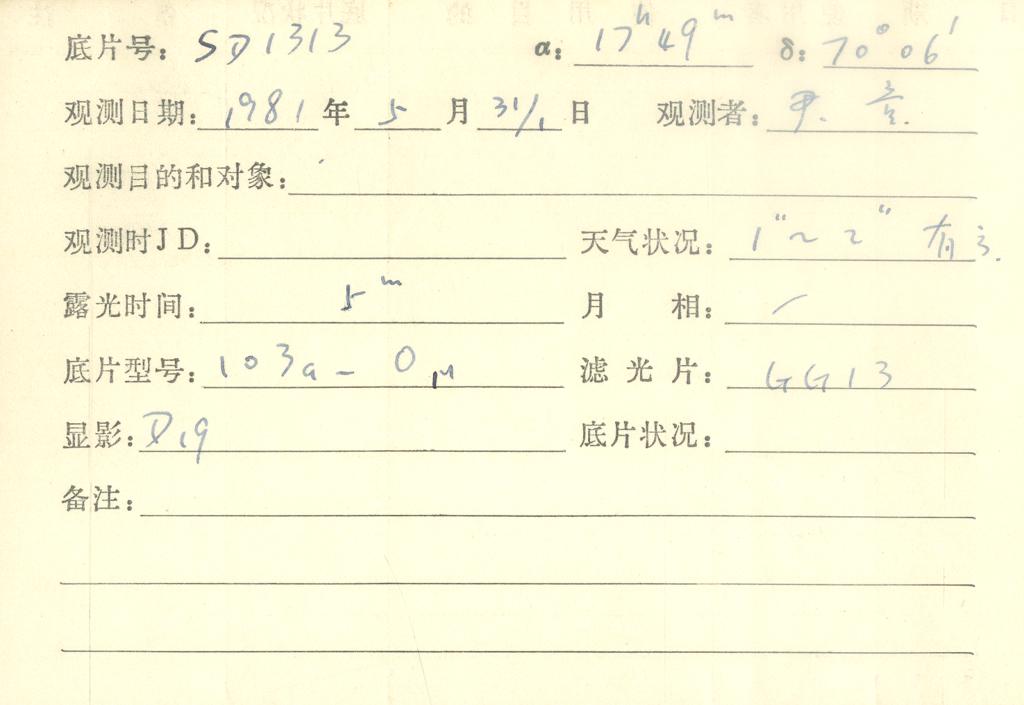 底片号: SD1313 α: 17ʰ 49ᵐ δ: 70° 06′
观测日期: 1981 年 5 月 31/1 日 观测者:
观测目的和对象:
观测时JD: 天气状况: 1″~2″ 有
露光时间: 5ᵐ 月 相: /
底片型号: 103a-O 滤光片: GG13
显影: D19 底片状况:
备注: